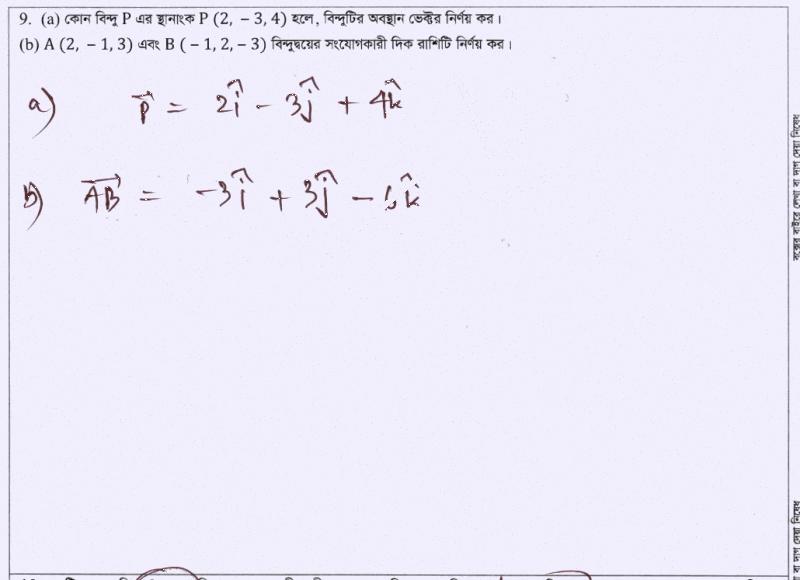 9. (a) কোন বিন্দু P এর স্থানাংক P (2, − 3, 4) হলে, বিন্দুটির অবস্থান ভেক্টর নির্ণয় কর।
(b) A (2, − 1, 3) এবং B ( − 1, 2, − 3) বিন্দুদ্বয়ের সংযোগকারী দিক রাশিটি নির্ণয় কর।
a) P⃗ = 2î − 3ĵ + 4k̂
b) AB⃗ = −3î + 3ĵ − 6k̂
বক্সের বাইরে লেখা বা দাগ দেয়া নিষেধ
বা দাগ দেয়া নিষেধ